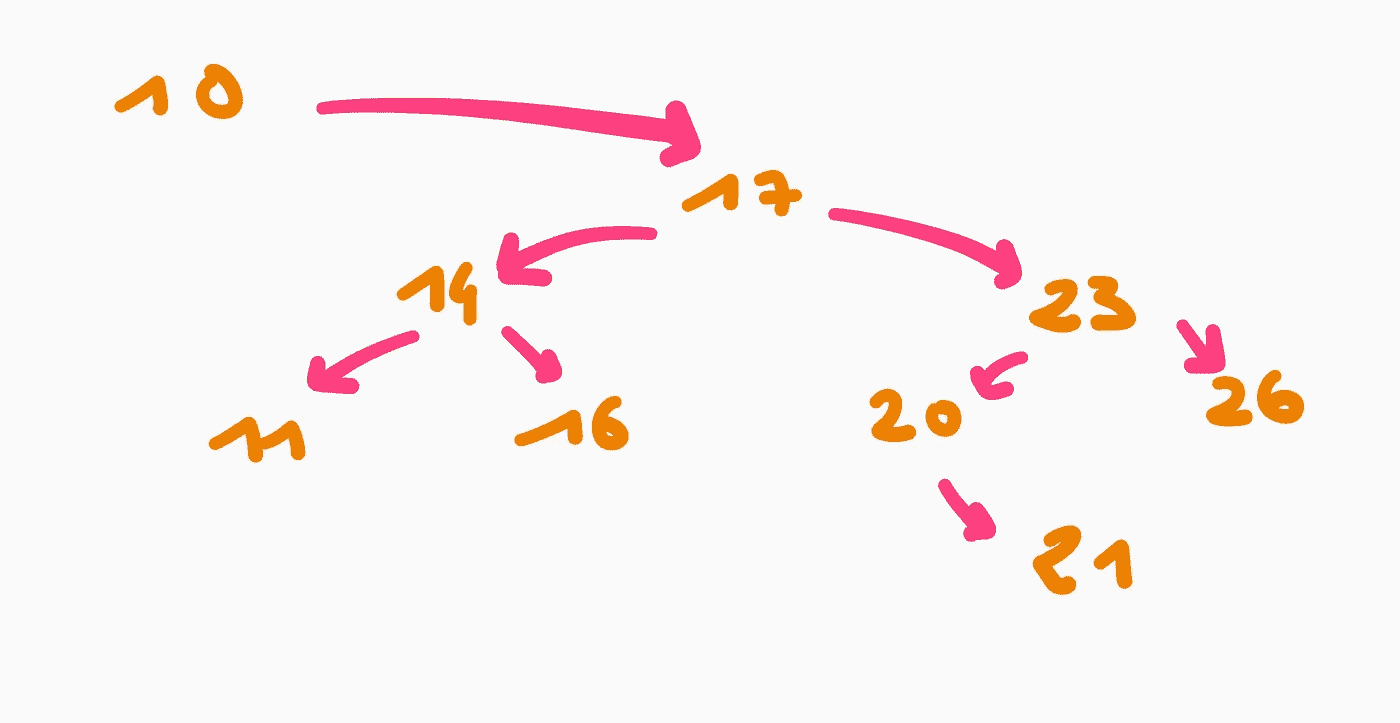 10
17
14
23
11
16
20
26
21